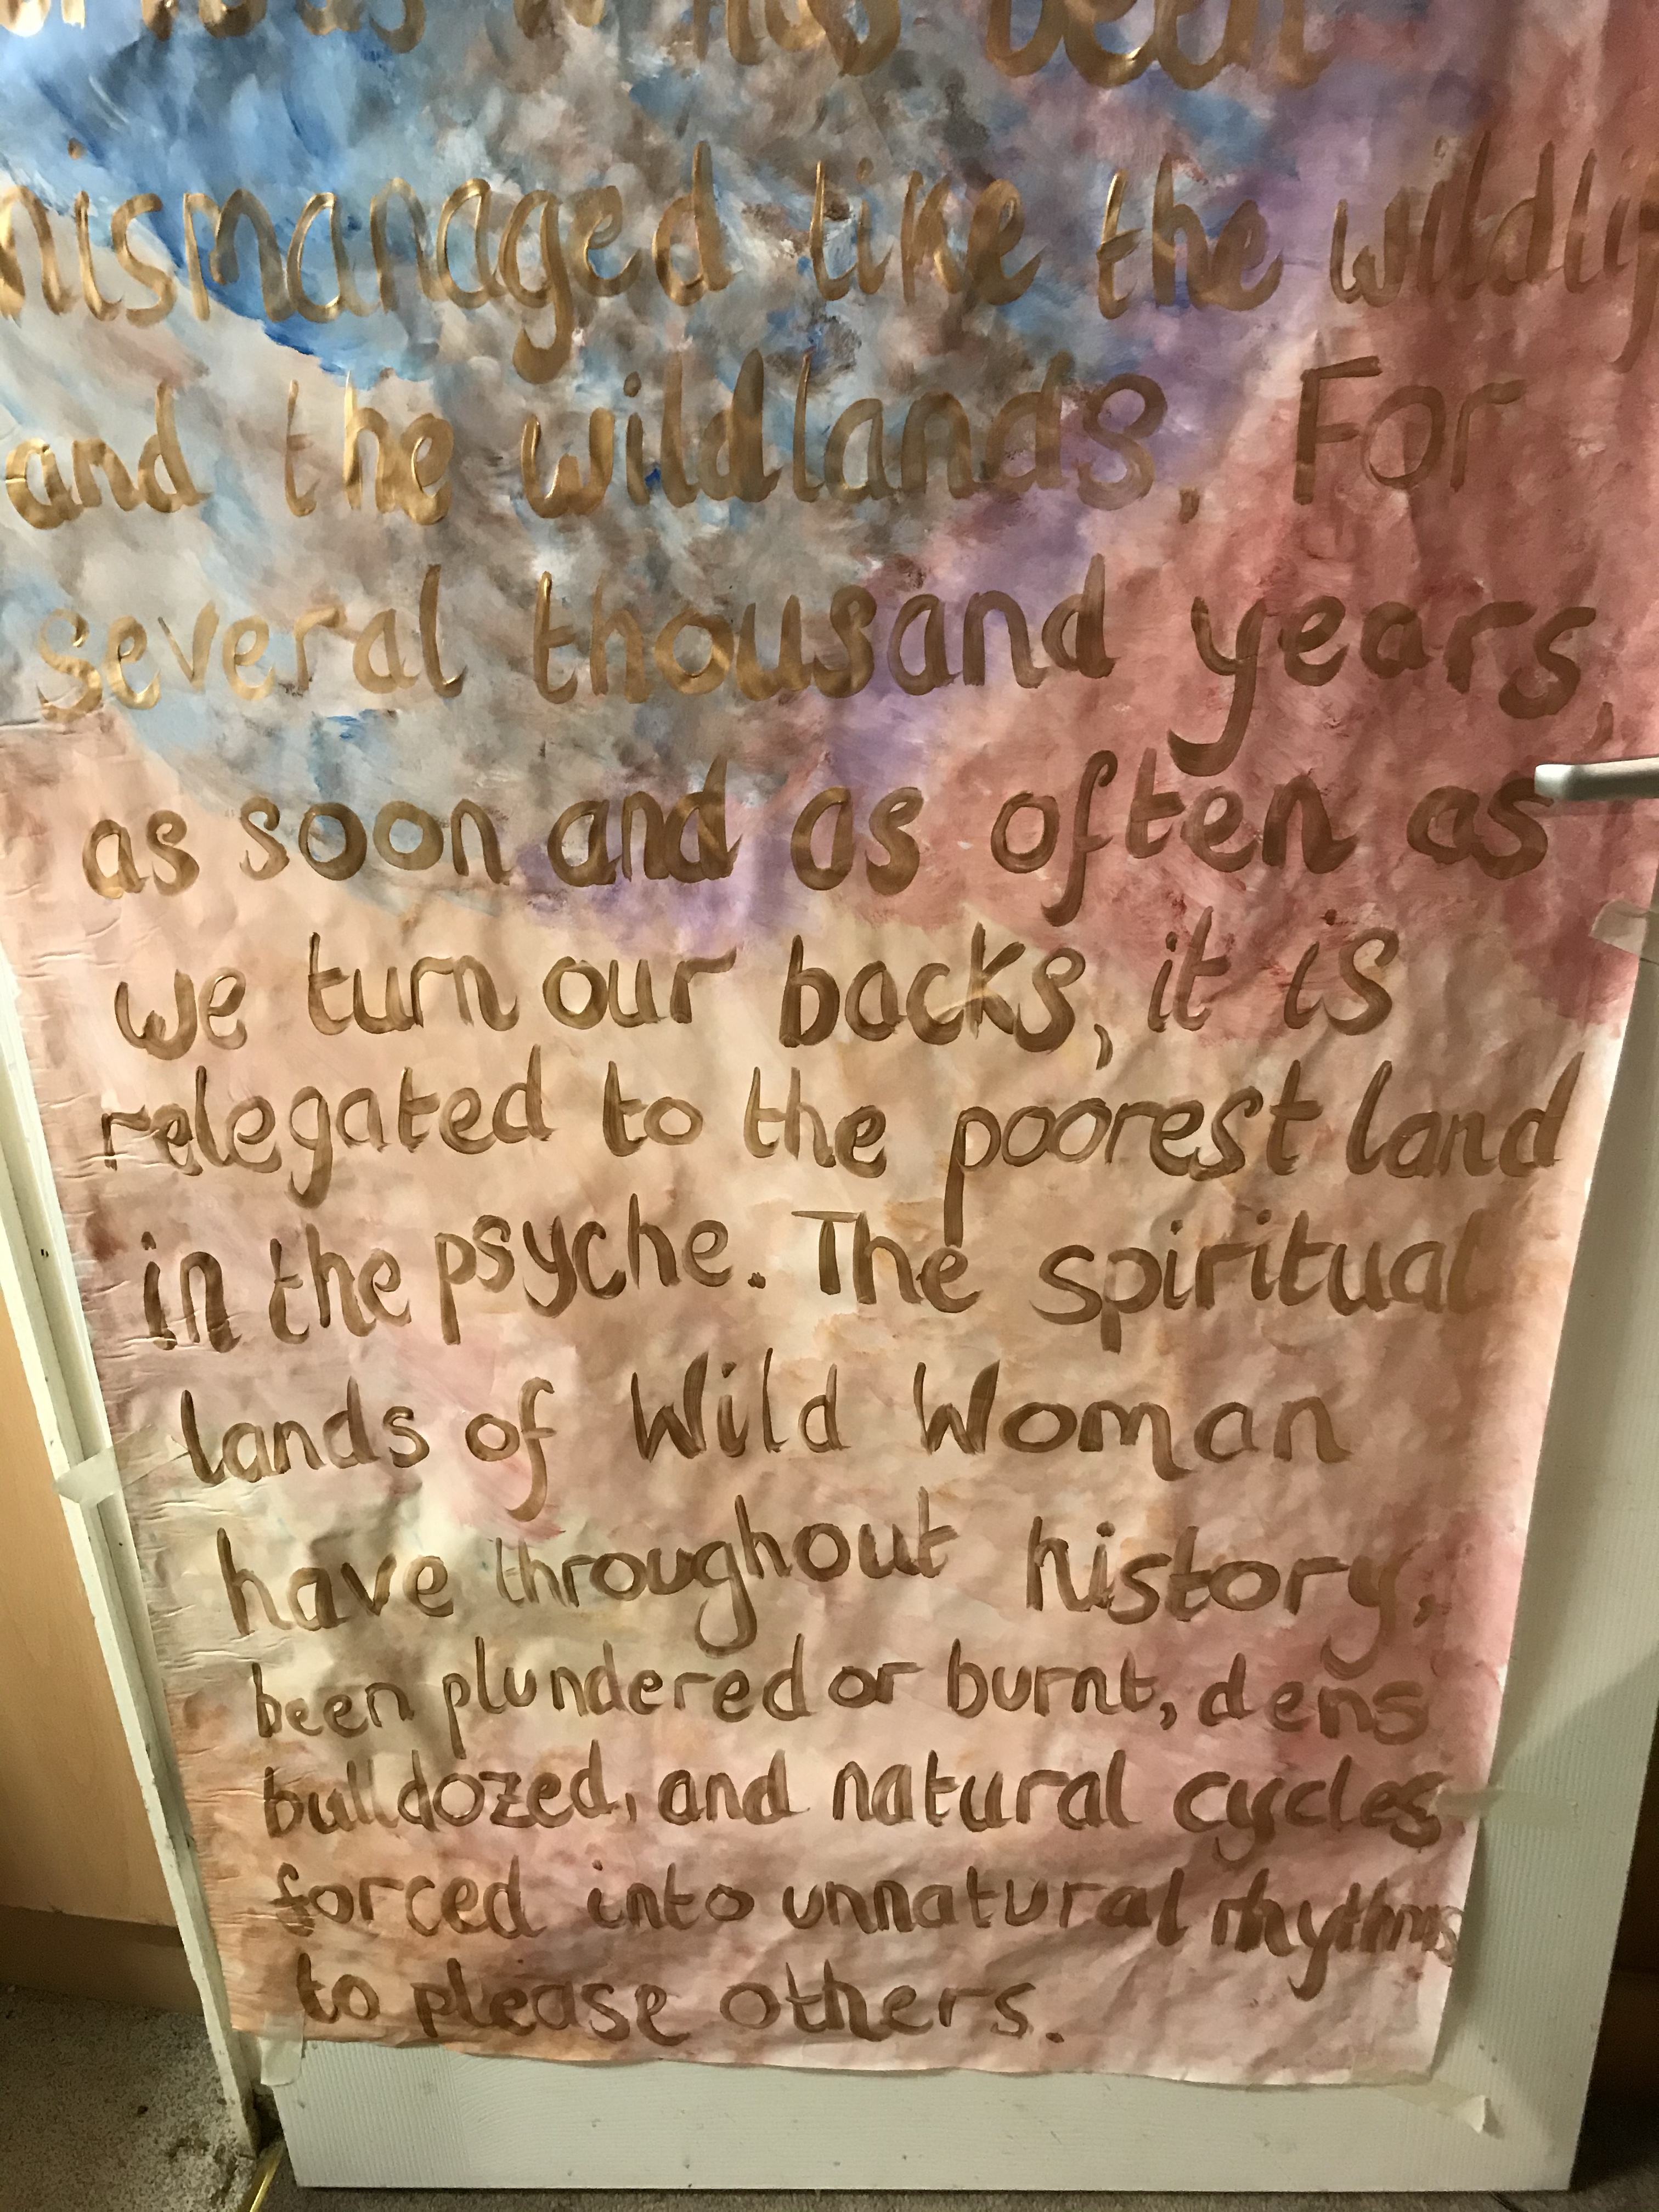 it has been
mismanaged like the wildlif
and the wildlands. For
several thousand years,
as soon and as often as
we turn our backs, it is
relegated to the poorest land
in the psyche. The spiritual
lands of Wild Woman
have throughout history,
been plundered or burnt, dens
bulldozed, and natural cycles
forced into unnatural rhythms
to please others.